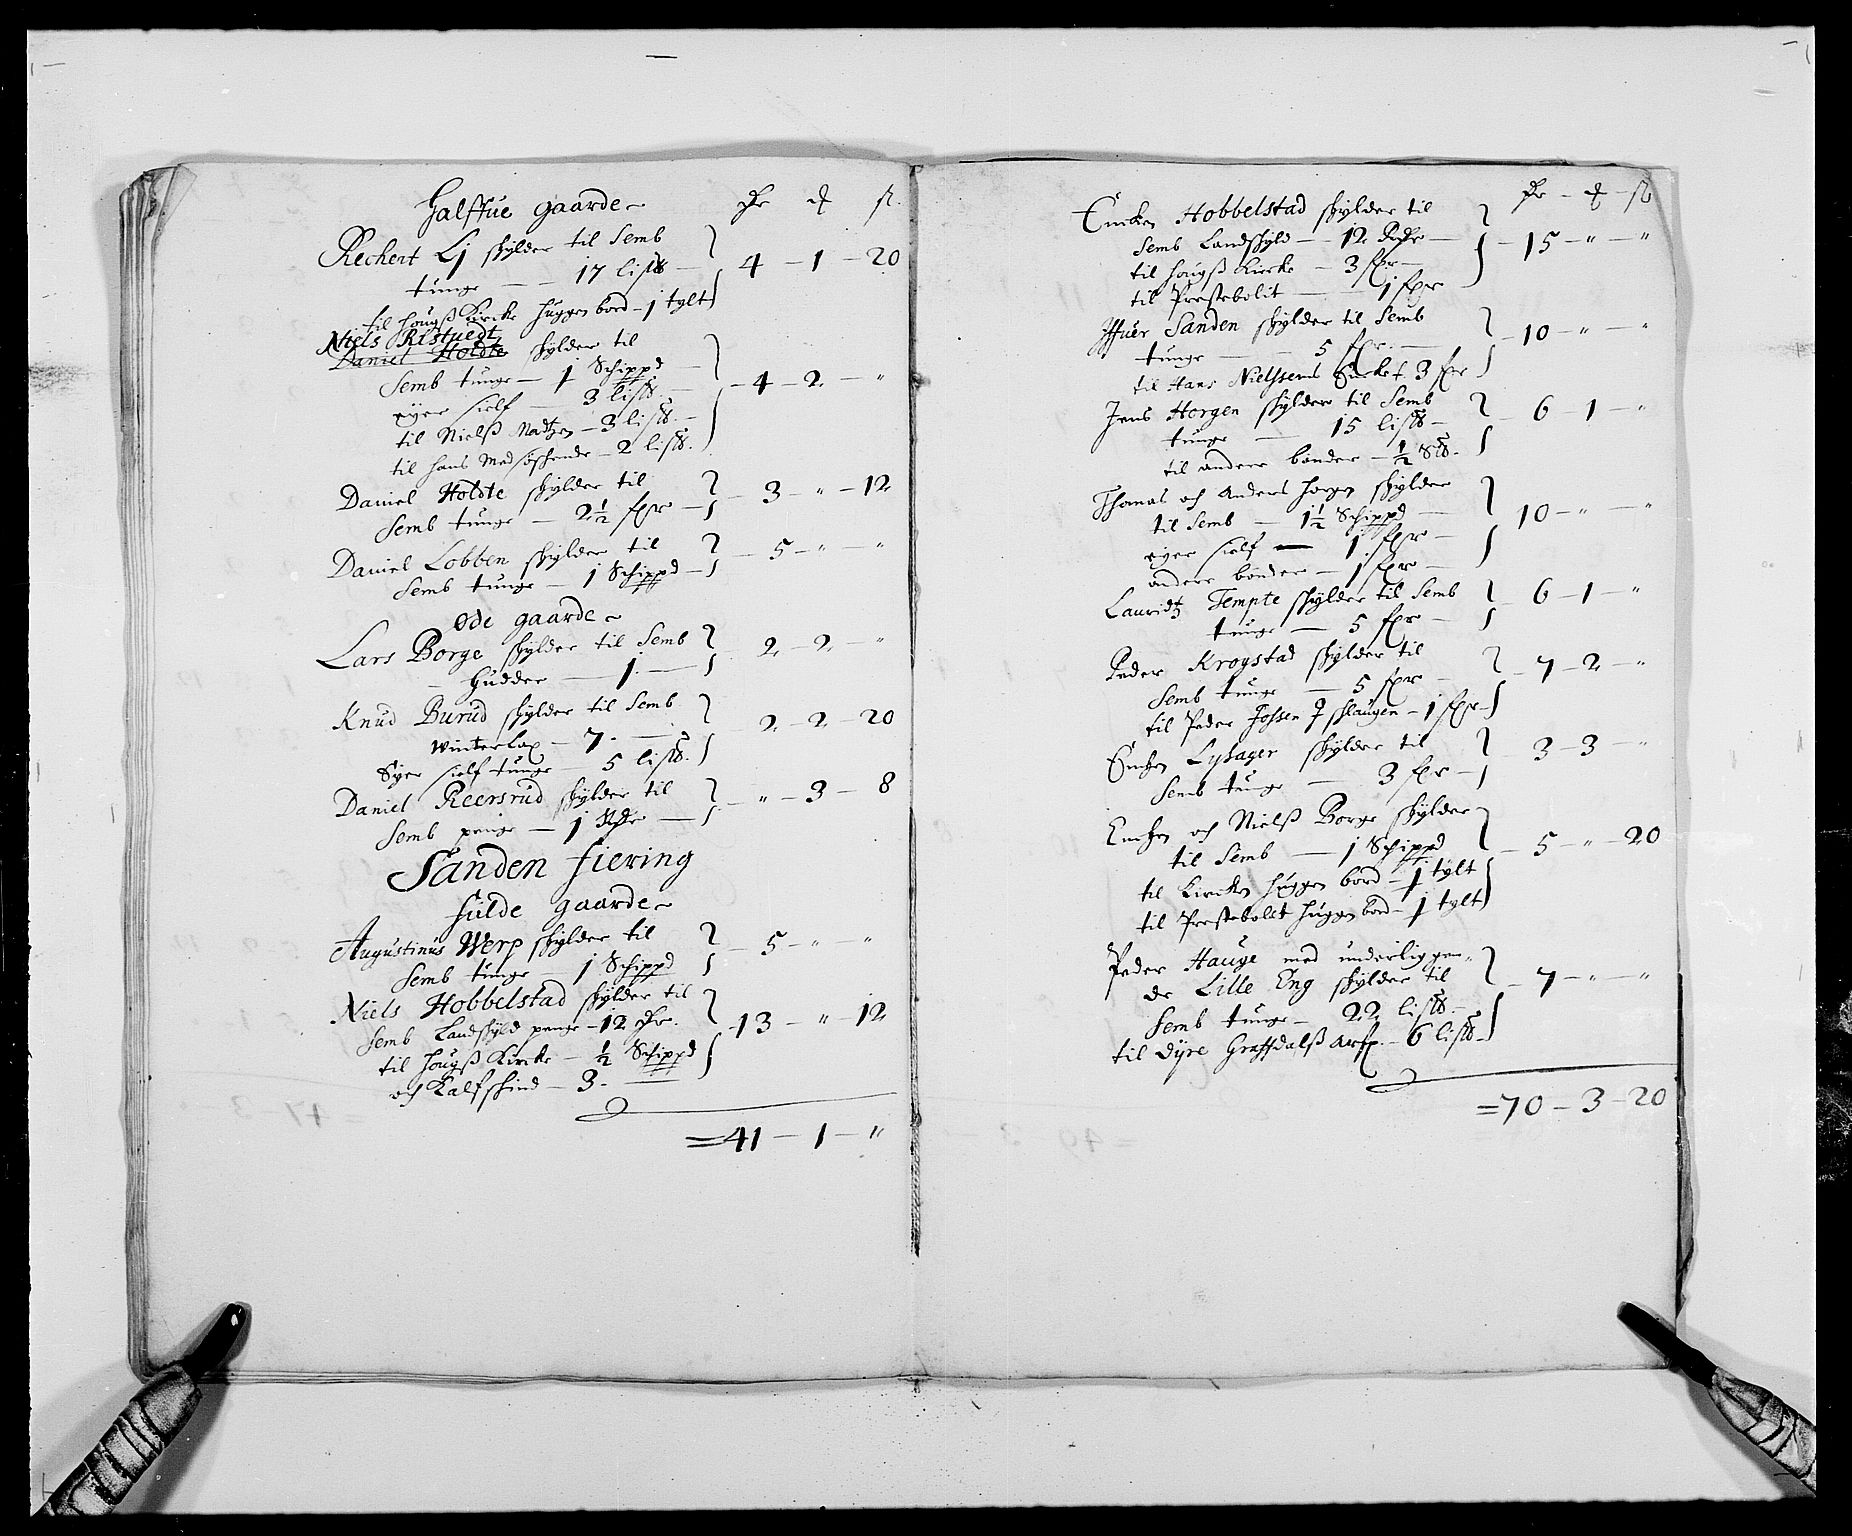 Halffue gaarde
Rechert Lj skylder til Semb
tunge — 17 lis℔ — 4 – 1 – 20
til Hougß Kircke huggen bord – 1 tylt
Niels Ristuedt
Daniel Holdte skylder til
Semb tunge — 1 Schippd
eyer sielf — 3 lis℔ — 4 – 2 – "
til Nielß Madtzen – 3 lis℔.
til hans Medsøskende – 2 lis℔.
Daniel Holdte skylder til
Semb tunge — 2½ fpr — 3 – " – 12
Daniel Lobben skylder til
Semb tunge — 1 Schippd — 5 – " – "
øde gaarde
Lars Borge skylder til Semb
Hudder — 1. — 2 – 2 – "
Knud Burud skylder til Semb
Winterlax – 7. — 2 – 2 – 20
Eyer sielf tunge 5 lis℔.
Daniel Reersrud skylder til
Semb penge — 1 Rdr — " – 3 – 8
Sanden fiering
fulde gaarde
Augustinus Werp skylder til
Semb tunge — 1 Schippd — 5 – " – "
Niels Hobbelstad skylder til
Semb Landskyld penge – 12 Dr. 13 – " – 12
til Hougß Kircke — ½ Schippd
och Kalfskind – 3.
= 41 – 1 – "
Hobbelstad skylder til
Semb Landskyld — 12 Rdr — 15 – " – "
til Hougß Kircke — 3 fpr
til Prestebolit — 1 fpr
Iffuer Sanden skylder til Semb
tunge — 5 fpr. — 10 – " – "
til Hans Nielssens 3 fpr
Jens Horgen skylder til Semb
tunge — 15 lis℔ — 6 – 1 – "
til andere bønder – ½ S℔.
Thomas och Anders Horgen skylder
til Semb — 1½ Schippd — 10 – " – "
eyer sielf — 1 fpr
andere bønder — 1 fpr
Lauridtz Tempte skylder til Semb
tunge — 5 fpr — 6 – 1 – "
Peder Krogstad skylder til
Semb tunge — 5 fpr — 7 – 2 – "
til Peder Jossen – 1 fpr
Lysager skylder til
Semb tunge — 3 fpr — 3 – 3 – "
och Nielß Borge skylder
til Semb — 1 Schippd — 5 – " – 20
til Kircken huggen bord – 1 tylt
til Prestebolit huggen bord – 1 tylt
Peder Hauge med underliggen„
de Lille Eng skylder til
Semb tunge – 22 lis℔ — 7 – " – "
til Dyre Graffdalß – 6 lis℔
= 70 – 3 – 20